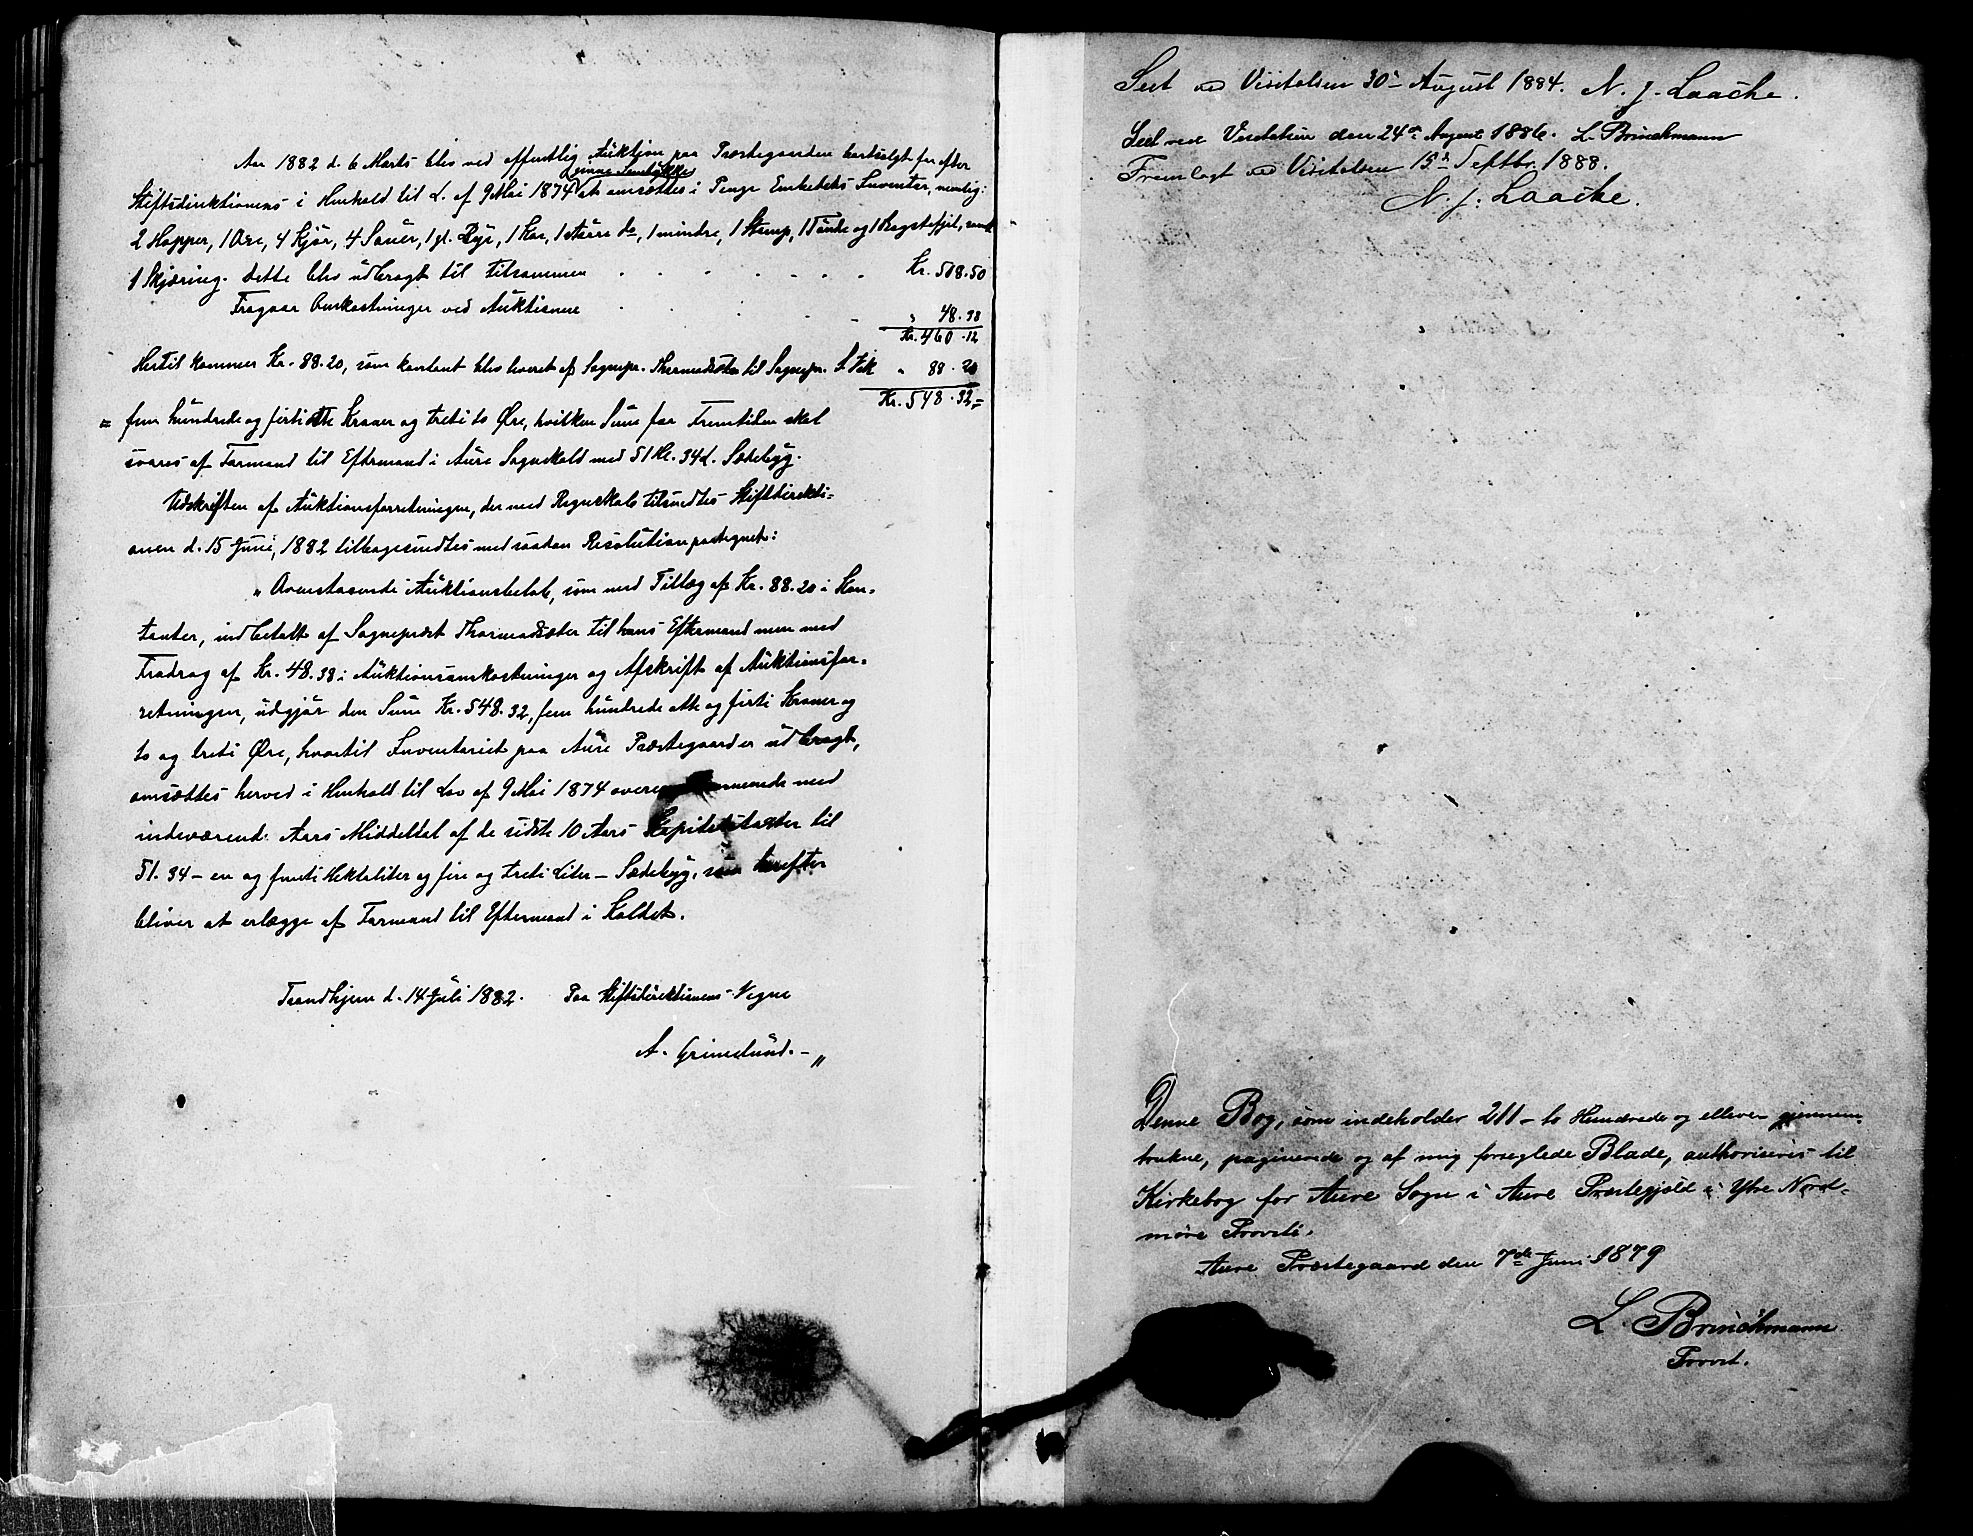 Aar 1882 d. 6 Marts blev ved offentlig Auktion paa Præstegaarden bortsolgt for efter
Stiftsdirektionens i Henhold til L. af 9 Mai 1874 at omsættes i Penge Embedets Inventar, nemlig:
2 Hopper, 1 Oxe, 4 Kjør, 4 Sauer, 1 gl. 1 Kar, 1 større do, 1 mindre, 1 Stamp, 1 Tønde og 1 samt
1 Skjæring. Dette blev udbragt til tilsammen Kr. 508.50
Fragaar Omkostninger ved Auktionen " 48.38
Kr. 460.12
Hertil kommer Kr. 88.20, som kontant blev leveret af Sognepr. Thormodsæter til Sognepr. S. Vik " 88.20
Kr. 548.32,-
= fem hundrede og førtiotte Kroner og treti to Øre, hvilken Sum for Fremtiden skal
svares af Formand til Eftermand i Aure Sognekald med 51 Hl. 34 L. Sædebyg.
Udskriften af Auktionsforretningen, der med Regnskab tilsendtes Stiftsdirekti-
onen d. 15 Juni, 1882 tilbagesendtes med saadan Resolution paategnet:
"Ovenstaaende Auktionsbeløb, som med Tillæg af Kr. 88.20 i Kon-
tanter, indbetalt af Sogneprest Thormodsæter til hans Eftermand men med
Fradrag af Kr. 48.38 i Auktionsomkostninger og Afskrift af Auktionsfor-
retningen, udgjør den Sum Kr. 548.32, fem hundrede otte og førti Kroner og
to og treti Øre, hvortil Inventariet paa Aure Præstegaard er udbragt,
omsættes herved i Henhold til Lov af 9 Mai 1874 med
indeværende Aars Middeltal af de sidste 10 Aars Kapitelstaxter til
51.34 – en og femti Hektoliter og fire og treti Liter – Sædebyg, som herefter
bliver at erlægge af Formand til Eftermand i Kaldet.
Trondhjem d. 14 Juli 1882. Paa Stiftsdirektionens Vegne
A. Grimelund. – "
Seet ved Visitatsen 30te August 1884. N. J. Laache.
Seet ved Visitatsen den 24de August 1886. L. Brinchmann
Fremlagt ved Visitatsen 15de Septbr. 1888.
N. J. Laache.
Denne Bog, som indeholder 211 – to Hundrede og elleve gjennem-
trukne, paginerede og af mig forseglede Blade, authoriseres til
Kirkebog for Aure Sogn i Aure Præstegjeld i Ytre Nord-
møre Provsti.
Aure Præstegaard den 7de Juni 1879
L. Brinchmann
Provst.